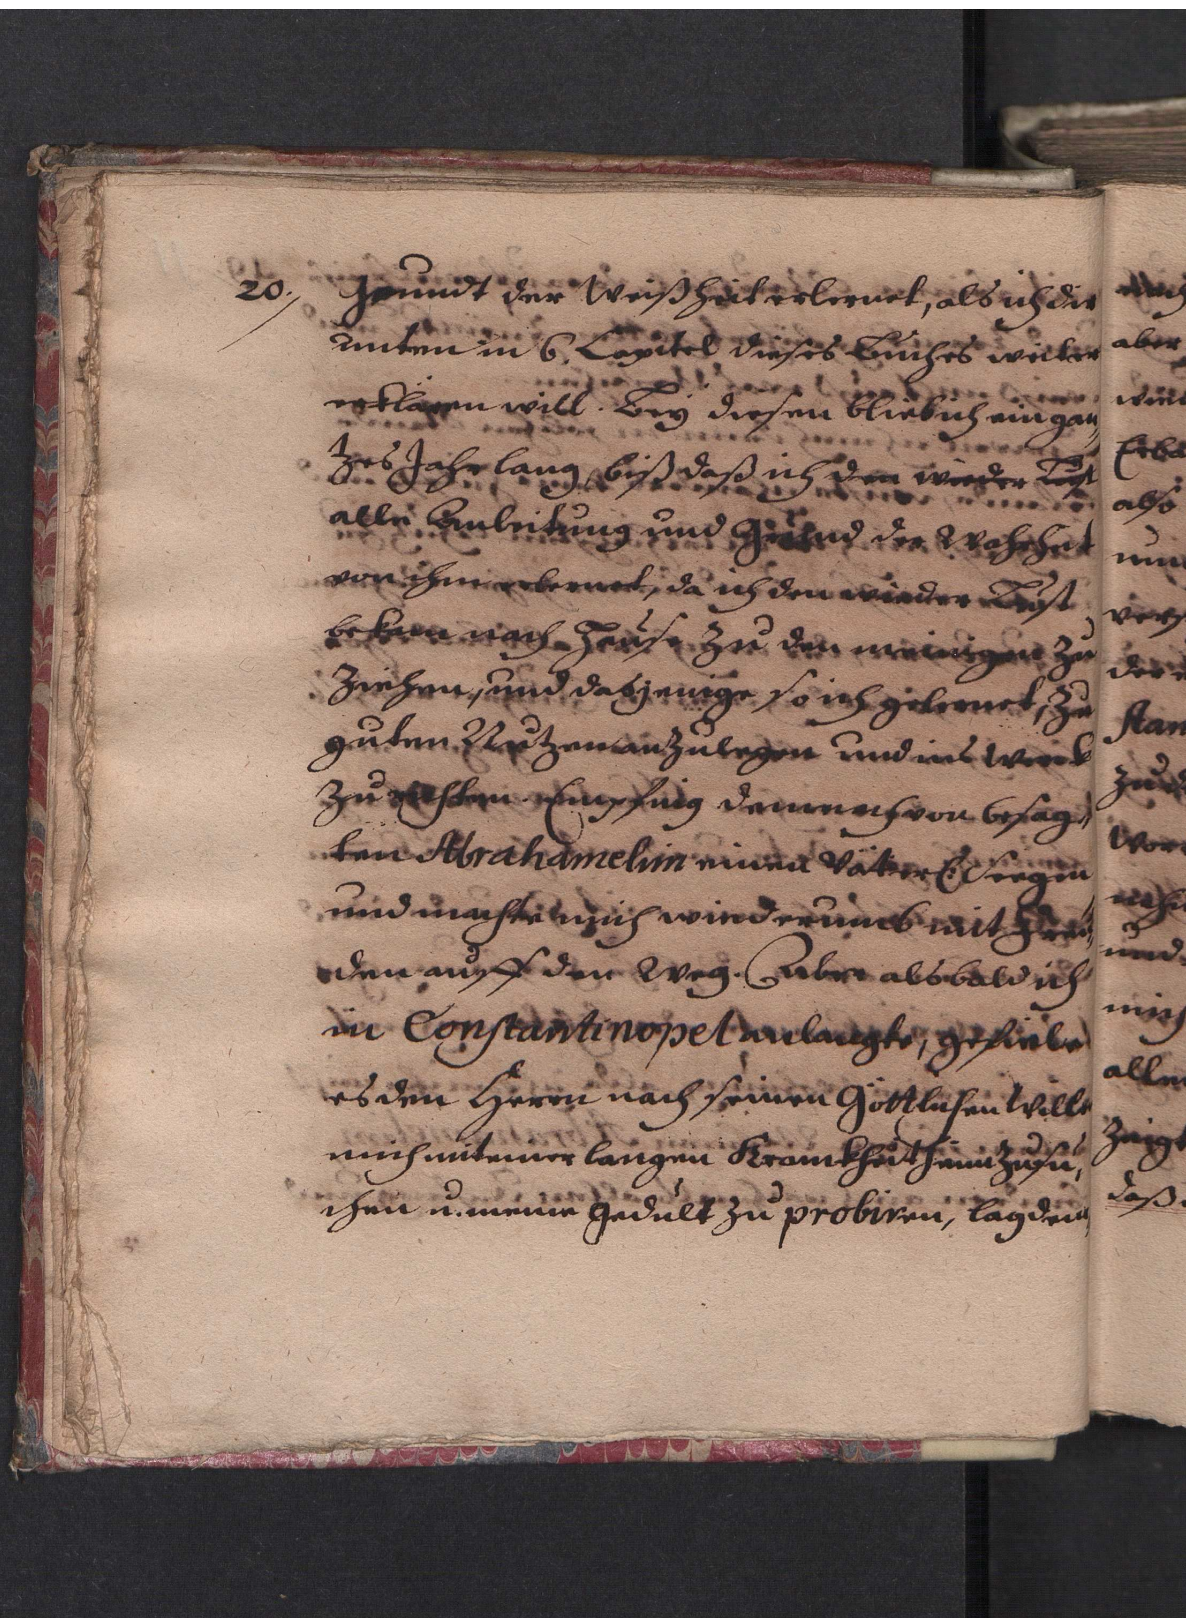 20. Grundt der Weißheit erlernet, als ich dir
unten in 6. Capitel dieses Buches weiter
erklären will. Bey diesen blieb ich ein gan,
tzes Jahr lang, biß daß ich den wieder Lust
alle Anleitung und Grund der Wahrheit
von ihm erlernet, da ich den wieder Lust
bekam nach Hause zu den meinigen zu
ziehen, und dasjenige so ich gelernet, zu
guten Nutzen anzulegen und ins Werck
zu richten. Empfing demnach von besag,
ten Abrahamelim einen Väterl: Seegen
und machte mich wiederumb mit Freu,
den auff den Weg. Aber alsbald ich
in Constantinopel anlangte, gefiele
es den Herrn nach seinen Göttlichen Wille
mich mit einer langen Kranckheit heimzusu,
chen u. meine Gedult zu probiren, lag den
aber
also
der
Stan
zu
Wor
und
mich
allen
zeigt
daß